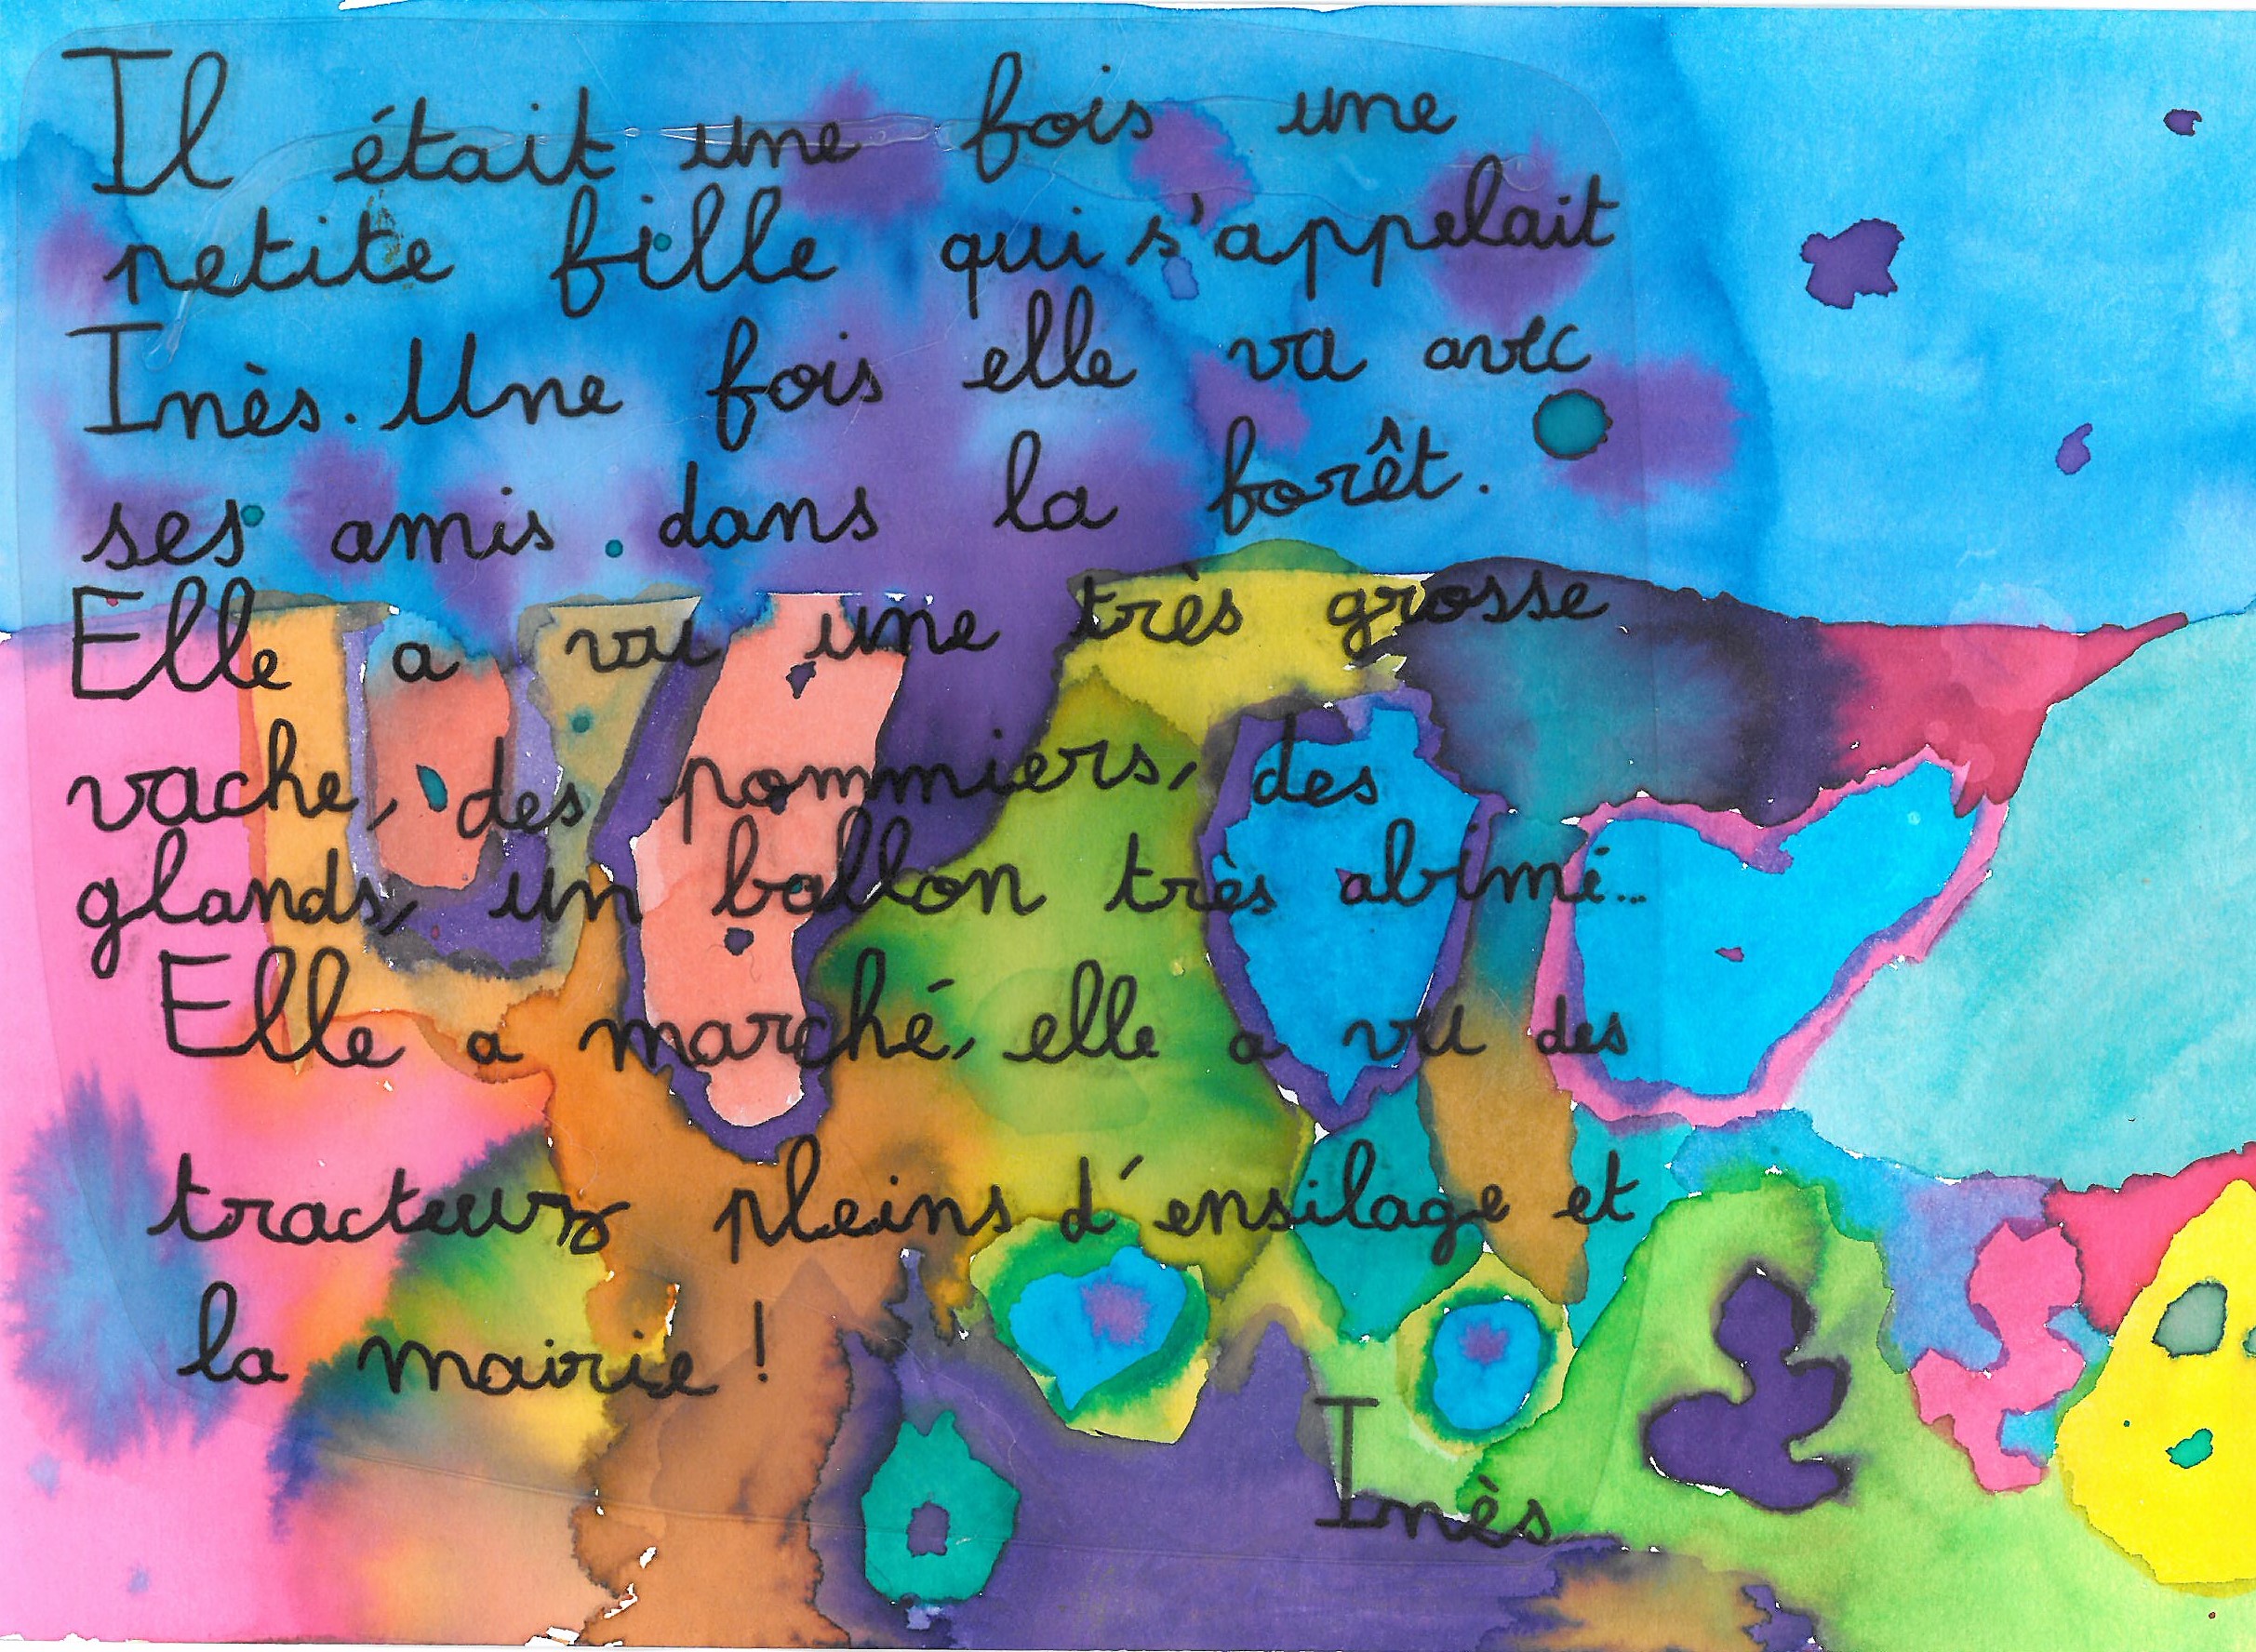 Il était une fois une
petite fille qui s'appelait
Inès. Une fois elle va avec
ses amis dans la forêt.
Elle a vu une très grosse
vache, des pommiers, des
glands, un ballon très abimé...
Elle a marché, elle a vu des
tracteurs pleins d'ensilage et
la mairie !
Inès